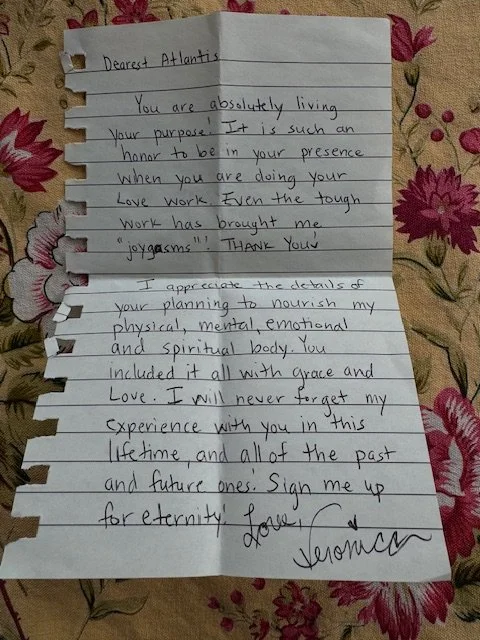 Dearest Atlantis
You are absolutely living
your purpose! It is such an
honor to be in your presence
when you are doing your
Love work. Even the tough
work has brought me
"joygasms"! THANK YOU!
I appreciate the details of
your planning to nourish my
physical, mental, emotional
and spiritual body. You
included it all with grace and
Love. I will never forget my
experience with you in this
lifetime, and all of the past
and future ones! Sign me up
for eternity! Love,
Veronica